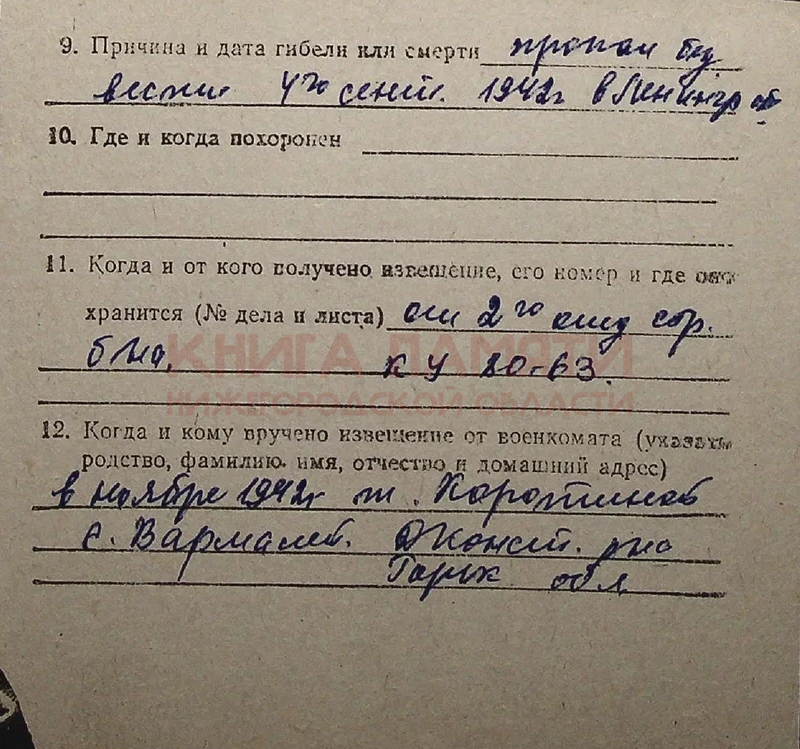 9. Причина и дата гибели или смерти пропал без
вести 4го сент. 1942г в Ленингр об
10. Где и когда похоронен
11. Когда и от кого получено извещение, его номер и где оно
хранится (№ дела и листа) от 2го отд сор.
КНИГА ПАМЯТИ
к У 20-63.
НИЖЕГОРОДСКОЙ ОБЛАСТИ
12. Когда и кому вручено извещение от военкомата (указать
родство, фамилию, имя, отчество и домашний адрес)
в ноябре 1942г т. Харотинов
с. Вармалей. Дконст. рно
Горьк обл